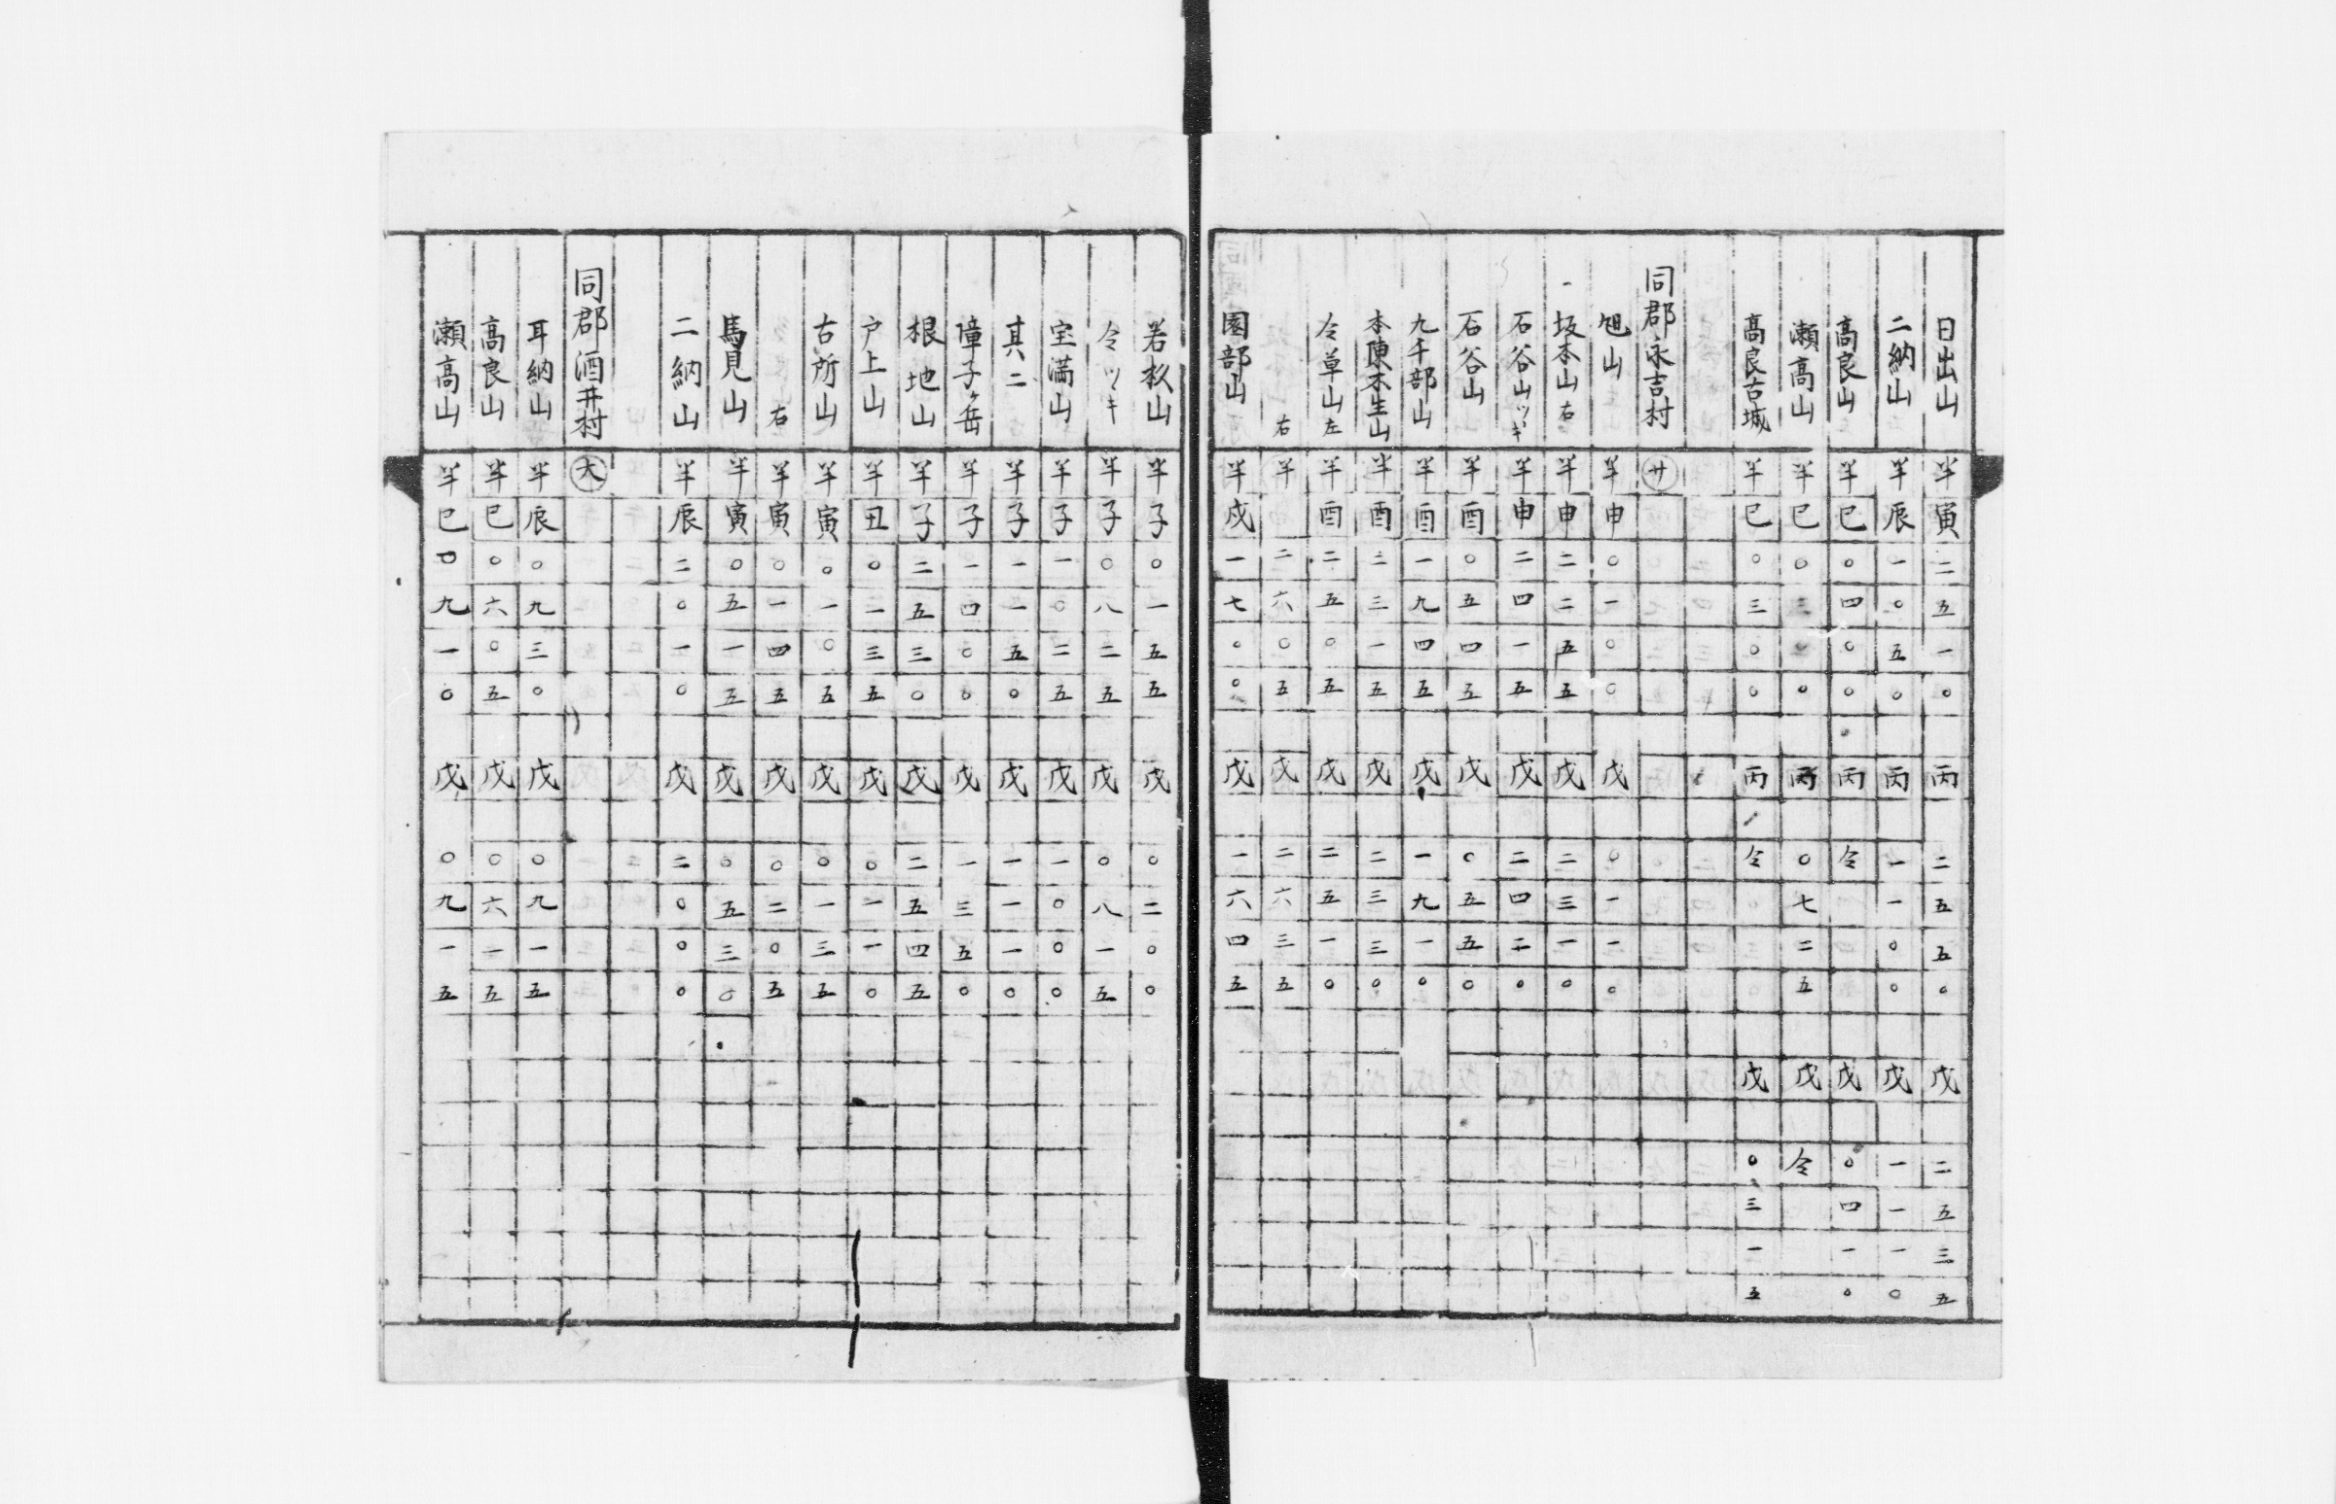 日出山 半寅二五一〇 丙 二五五〇 戊 二五三五
二納山 半辰一〇五〇 丙 一一〇〇 戊 一一一〇
高良山 半巳〇四〇〇 丙 仝 戊 〇四一〇
瀬高山 半巳〇三 〇 丙 〇七二五 戊 仝
高良古城 半巳〇三〇〇 丙 仝 戊 〇三一五
同郡永吉村 廿
旭山 半申〇一〇〇 戊 〇一一〇
坂本山右 半申二二五五 戊 二三一〇
石谷山ツヾキ 半申二四一五 戊 二四二〇
石谷山 半酉〇五四五 戊 〇五五〇
九千部山 半酉一九四五 戊 一九一〇
本陳不生山 半酉二三一五 戊 二三三〇
仝草山左 半酉二五〇五 戊 二五一〇
右 半 二六〇五 戊 二六三五
園部山 半戌一七〇〇 戊 一六四五
若杦山 半子〇一五五 戊 〇二〇〇
仝ツヾキ 半子〇八二五 戊 〇八一五
宝満山 半子一〇二五 戊 一〇〇〇
其二 半子一一五〇 戊 一一一〇
障子ヶ岳 半子一四〇〇 戊 一三五〇
根地山 半子二五三〇 戊 二五四五
戸上山 半丑〇一三五 戊 〇一一〇
古所山 半寅〇一〇五 戊 〇一三五
右 半寅〇一四五 戊 〇二〇五
馬見山 半寅〇五一五 戊 〇五三〇
二納山 半辰二〇一〇 戊 二〇〇〇
同郡酒井村 大
耳納山 半辰〇九三〇 戊 〇九一五
高良山 半巳〇六〇五 戊 〇六一五
瀬高山 半巳〇九一〇 戊 〇九一五